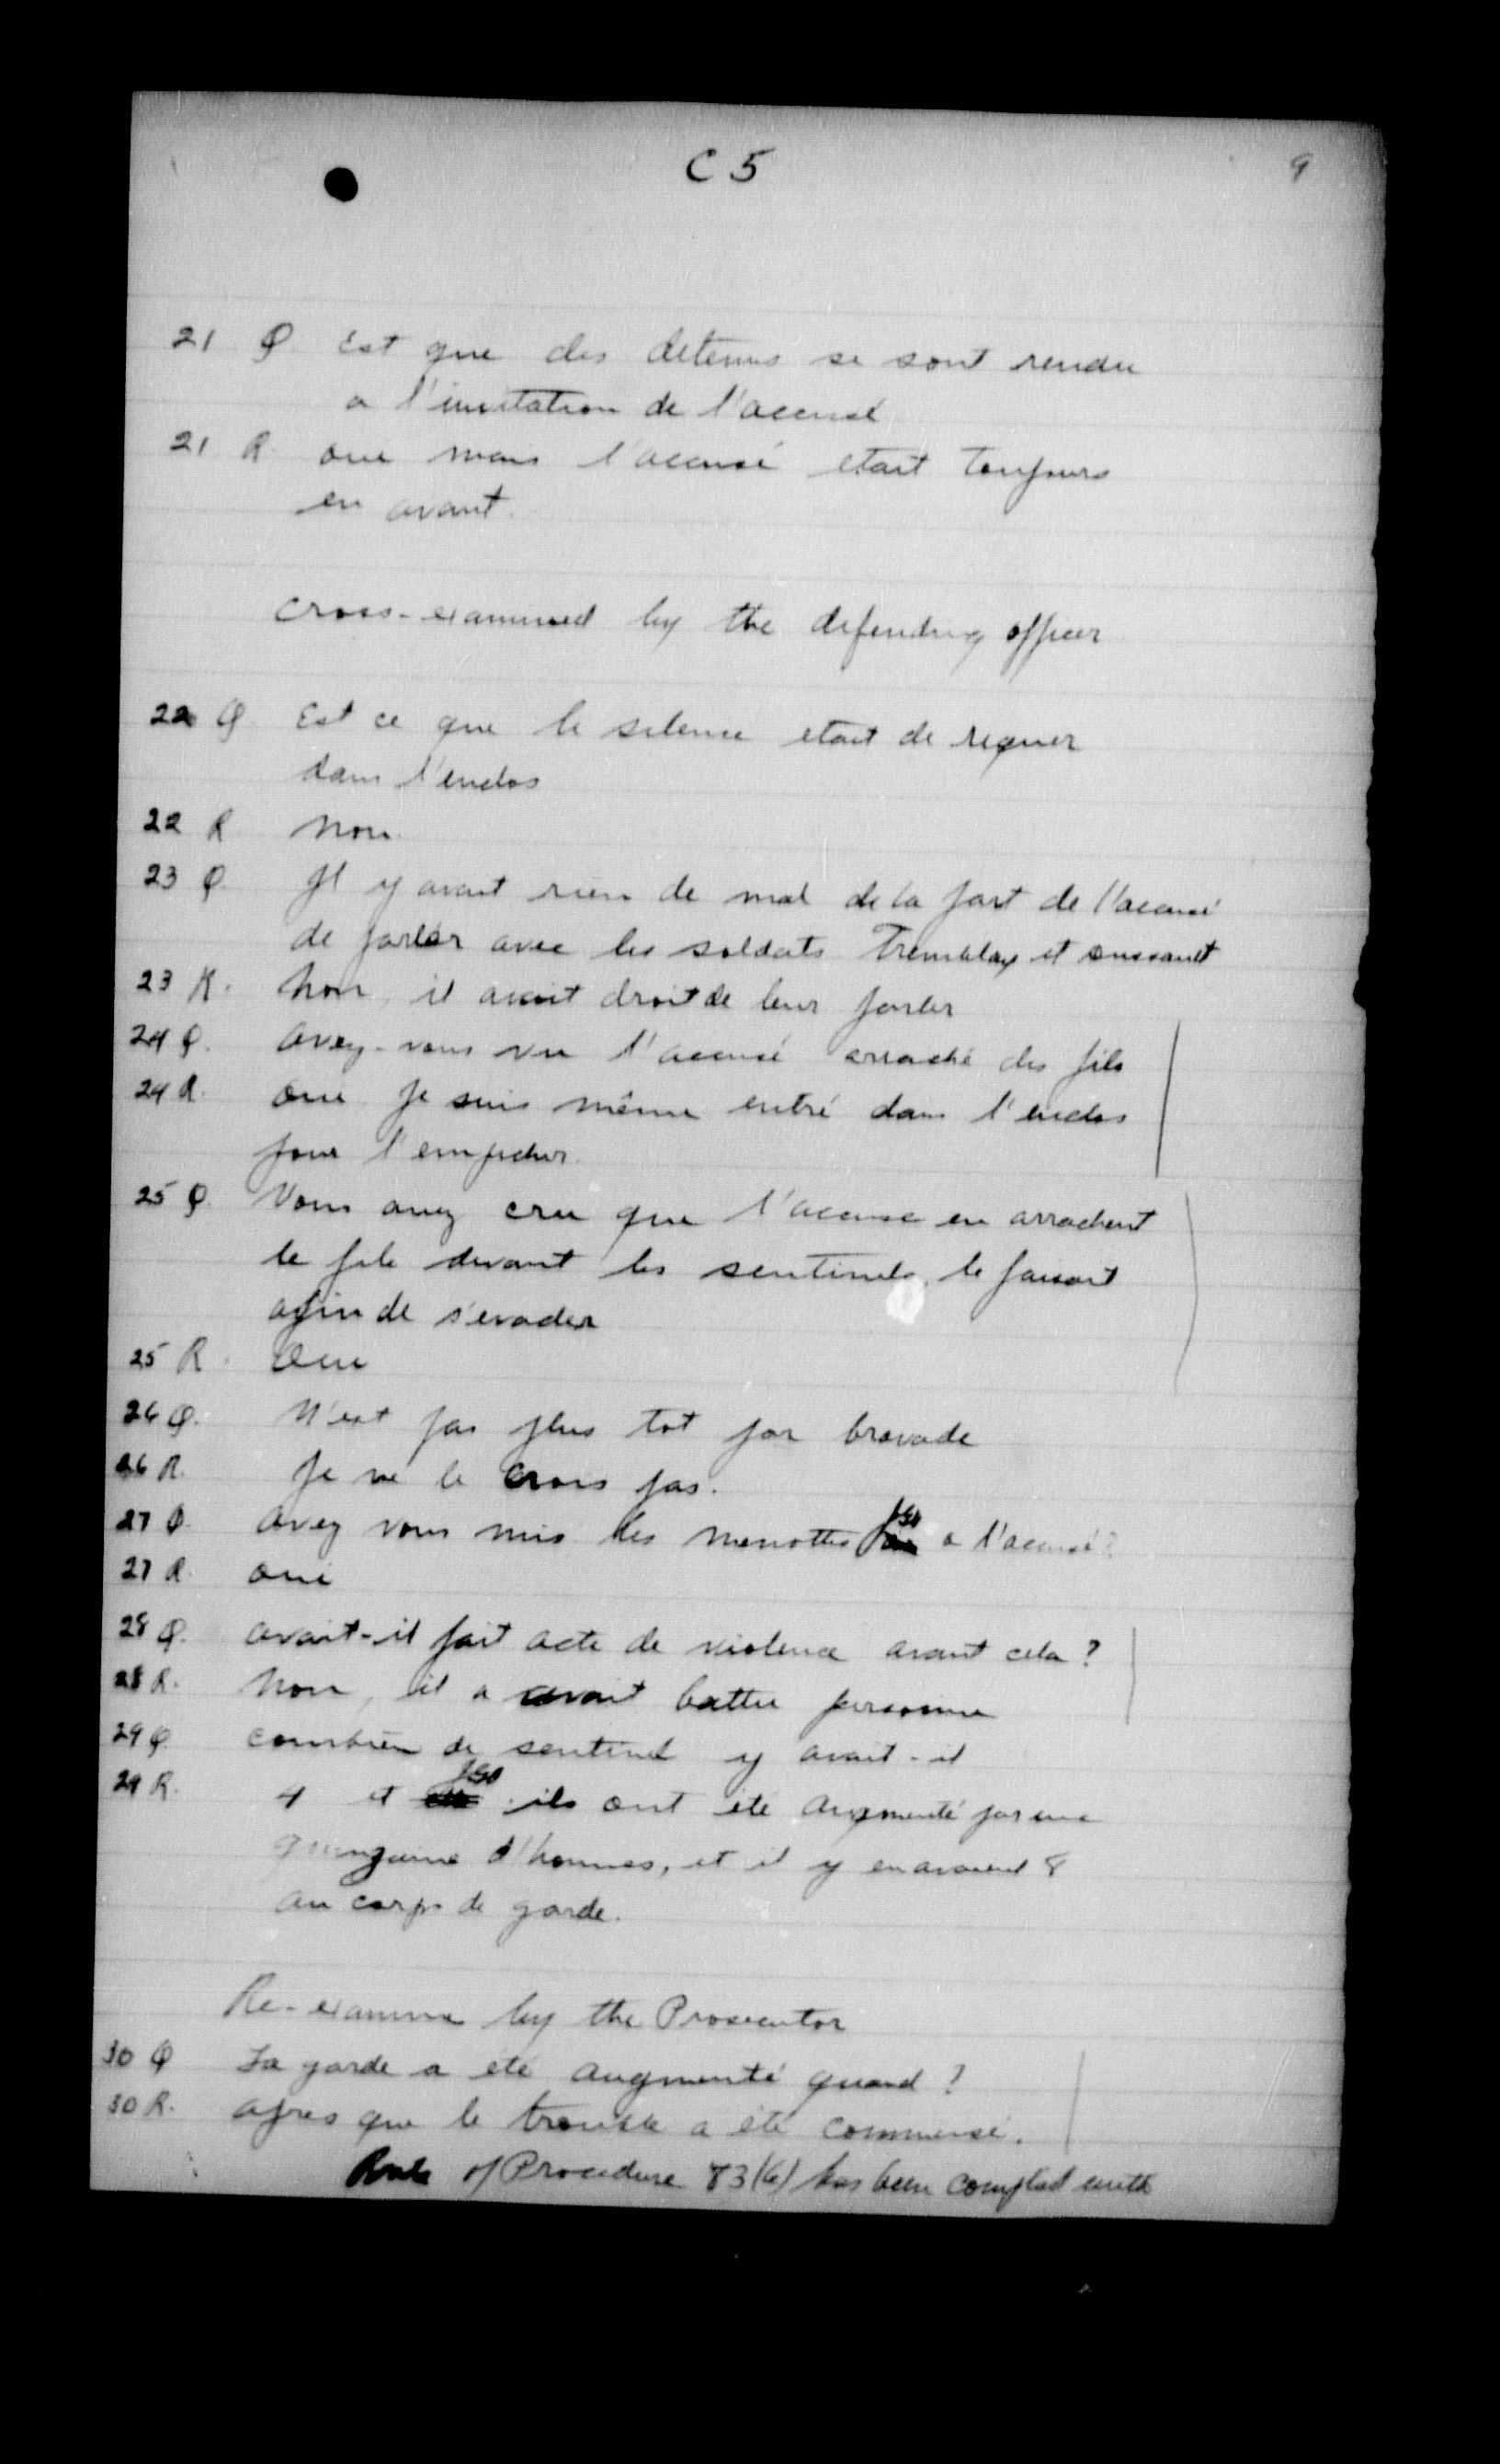 C 5
9
21 Q Est que des detenus se sont rendu
a l'invitation de l'accusé
21 R. oui mais l'accusé etait toujours
en avant.
cross-examined by the defending officer
22 Q. Est ce que le silence etait de riguer
dans l'enclos
22 R non.
23 Q. Il y avait rien de mal de la part de l'accusé
de parler avec les soldats Tremblay et
23 R. non, il avait droit de leur parler
24 Q. avez-vous vu l'accusé arraché des fils
24 R. oui je suis même entré dans l'enclos
pour l'empecher.
25 Q. Vous avez cru que l'accuse en arrachent
le file devant les sentinels, le faisait
afin de s'evader
25 R. Oui
26 Q. N'est pas plus tot par bravade
26 R. Je ne le crois pas.
27 Q. avez vous mis les menottes a l'accusé?
27 R. oui
28 Q. avait-il fait acte de violence avant cela?
28 R. non, il a avait battu personne
29 Q. combien de sentinel y avait-il
29 R. 4 et ils ont été augmenté par une
quinzaine d'hommes, et il y en avaient 8
au corps de garde.
Re-examine by the Prosecutor
30 Q La garde a été augmenté quand?
30 R. apres que le trouble a été commensé.
Rule of Procedure 83(b) has been complied with